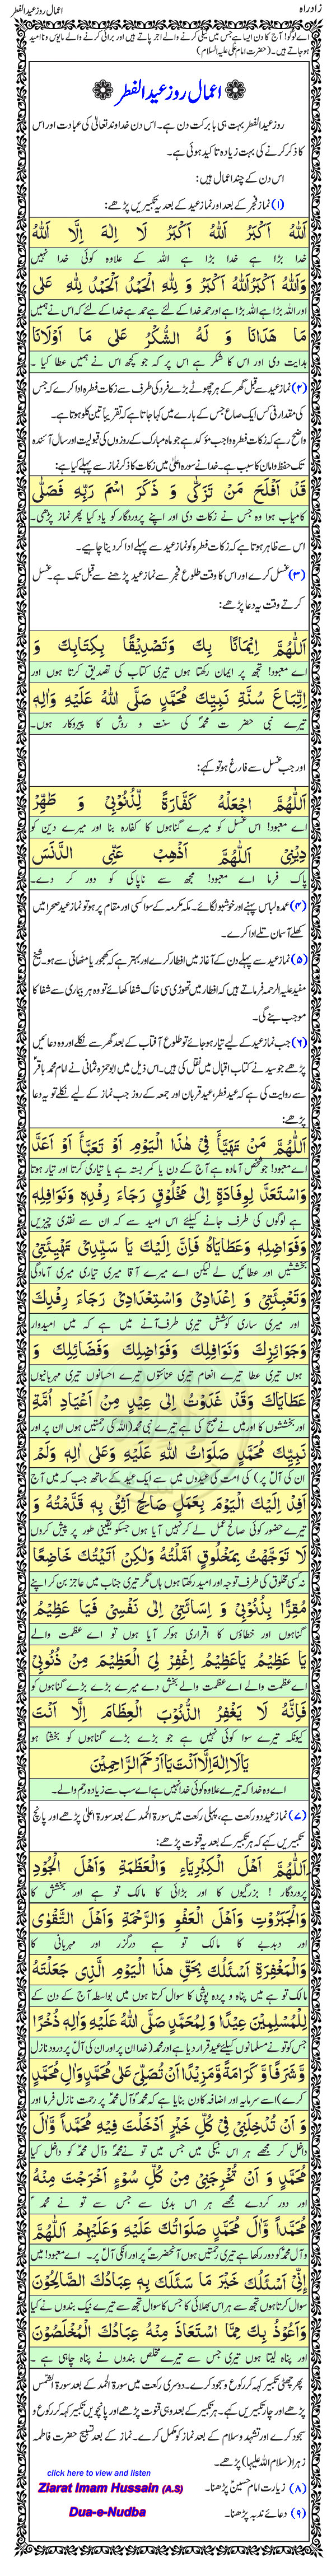 زادراہ
اعمال روز عید الفطر
اے لوگو! آج کا دن ایسا ہے جس میں نیکی کرنے والے اجر پاتے ہیں اور برائی کرنے والے مایوس و ناامید
ہو جاتے ہیں۔ (حضرت امام علی علیہ السلام)
اعمال روز عید الفطر
روز عید الفطر بہت ہی بابرکت دن ہے۔ اس دن خداوند تعالیٰ کی عبادت اور اس
کا ذکر کرنے کی بہت زیادہ تاکید ہوئی ہے۔
اس دن کے چند اعمال ہیں:
(۱) نماز فجر کے بعد اور نماز عید کے بعد یہ تکبیریں پڑھے:
اَللّٰهُ اَکْبَرُ اَللّٰهُ اَکْبَرُ لَا اِلٰهَ اِلَّا اللّٰهُ
خدا بڑا ہے خدا بڑا ہے اللہ کے علاوہ کوئی خدا نہیں
وَاللّٰهُ اَکْبَرُ اَللّٰهُ اَکْبَرُ وَ لِلّٰهِ الْحَمْدُ اَلْحَمْدُ لِلّٰهِ عَلٰی
اور اللہ بڑا ہے اللہ بڑا ہے اور حمد خدا کے لئے ہے حمد ہے خدا کے لئے کہ اس نے ہمیں
مَا هَدَانَا وَ لَهُ الشُّکْرُ عَلٰی مَا اَوْلَانَا
ہدایت دی اور اس کا شکر ہے اس پر کہ جو کچھ اس نے ہمیں عطا کیا ۔
(۲) نماز عید سے قبل گھر کے ہر چھوٹے بڑے فرد کی طرف سے زکات فطرہ ادا کرے کہ جس
کی مقدار فی کس ایک صاع جس کے بارے میں کہا جاتا ہے کہ تقریباً تین کلو ہوتا ہے۔
واضح رہے کہ زکات فطرہ واجب مؤکد ہے جو ماہ مبارک کے روزوں کی قبولیت اور سال آئندہ
تک حفظ و امان کا سبب ہے۔ خدا نے سورہ اعلیٰ میں زکات کا ذکر نماز سے پہلے کیا ہے:
قَدْ اَفْلَحَ مَنْ تَزَکّٰی وَ ذَکَرَ اسْمَ رَبِّهٖ فَصَلّٰی
کامیاب ہوا وہ جس نے زکات دی اور اپنے پروردگار کو یاد کیا پھر نماز پڑھی۔
اس سے ظاہر ہوتا ہے کہ زکات فطرہ کو نماز عید سے پہلے ادا کر دینا چاہیے۔
(۳) غسل کرے اور اس کا وقت طلوع فجر سے نماز عید پڑھنے سے قبل تک ہے۔ غسل
کرتے وقت یہ دعا پڑھے:
اَللّٰهُمَّ اِیْمَانًا بِكَ وَتَصْدِیْقًا بِکِتَابِكَ وَ
اے معبود! تجھ پر ایمان رکھتا ہوں تیری کتاب کی تصدیق کرتا ہوں اور
اِتِّبَاعَ سُنَّةِ نَبِیِّكَ مُحَمَّدٍ صَلَّی اللّٰهُ عَلَیْهِ وَاٰلِهٖ
تیرے نبی حضرت محمدؐ کی سنت و روش کا پیروکار ہوں۔
اور جب غسل سے فارغ ہو تو کہے:
اَللّٰهُمَّ اجْعَلْهُ کَفَّارَةً لِّذُنُوْبِیْ وَ طَهِّرْ
اے معبود! اس غسل کو میرے گناہوں کا کفارہ بنا اور میرے دین کو
دِیْنِیْ اَللّٰهُمَّ اَذْهِبْ عَنِّی الدَّنَسَ
پاک فرما اے معبود! مجھ سے ناپاکی کو دور کر دے۔
(۴) عمدہ لباس پہنے اور خوشبو لگائے۔ مکہ مکرمہ کے سوا کسی اور مقام پر ہو تو نماز عید صحرا میں
کھلے آسمان تلے ادا کرے۔
(۵) نماز عید سے پہلے دن کے آغاز میں افطار کرے اور بہتر ہے کہ کھجور یا مٹھائی سے ہو۔ شیخ
مفید علیہ الرحمہ فرماتے ہیں کہ افطار میں تھوڑی سی خاک شفا کھائے تو وہ ہر بیماری سے شفا کا
موجب بنے گی۔
(۶) جب نماز عید کے لیے تیار ہو جائے تو طلوع آفتاب کے بعد گھر سے نکلے اور وہ دعائیں
پڑھے جو سید نے کتاب اقبال میں نقل کی ہیں۔ اس ذیل میں ابوحمزہ ثمالی نے امام محمد باقرؑ
سے روایت کی ہے کہ عید فطر، عید قربان اور جمعہ کے روز جب نماز کے لیے نکلے تو یہ دعا
پڑھے:
اَللّٰهُمَّ مَنْ تَهَیَّأَ فِیْ هٰذَا الْیَوْمِ اَوْ تَعَبَّأَ اَوْ اَعَدَّ
اے معبود! جو شخص آمادہ ہے آج کے دن یا کمر بستہ ہے یا تیاری کرتا اور تیار ہوتا
وَاسْتَعَدَّ لِوِفَادَةٍ اِلٰی مَخْلُوْقٍ رَجَاءَ رِفْدِهٖ وَنَوَافِلِهٖ
ہے لوگوں کی طرف جانے کیلئے اس امید سے کہ ان سے نقدی چیزیں
وَفَوَاضِلِهٖ وَعَطَایَاهُ فَاِنَّ اِلَیْكَ یَا سَیِّدِیْ تَهْیِئَتِیْ
بخششیں اور عطائیں لے لیکن اے میرے آقا میری تیاری میری آمادگی
وَتَعْبِئَتِیْ وَ اِعْدَادِیْ وَاسْتِعْدَادِیْ رَجَاءَ رِفْدِكَ
اور میری ساری کوشش تیری طرف آنے میں ہے کہ میں امیدوار
وَجَوَائِزِكَ وَنَوَافِلِكَ وَفَوَاضِلِكَ وَفَضَائِلِكَ وَ
ہوں تیری عطا تیرے انعام تیری عنائتوں تیرے احسانوں تیری مہربانیوں
عَطَایَاكَ وَقَدْ غَدَوْتُ اِلٰی عِیْدٍ مِنْ اَعْیَادِ اُمَّةِ
اور بخششوں کا اور میں نے صبح کی ہے تیرے نبی محمدؐ (اللہ کی رحمتیں ہوں ان پر اور
نَبِیِّكَ مُحَمَّدٍ صَلَوَاتُ اللّٰهِ عَلَیْهِ وَعَلٰی اٰلِهٖ وَلَمْ
ان کی آلؑ پر) کی امت کی عیدوں میں سے ایک عید کے ساتھ جب کہ میں آج
اَفِدْ اِلَیْكَ الْیَوْمَ بِعَمَلٍ صَالِحٍ اَثِقُ بِهٖ قَدَّمْتُهُ وَ
تیرے حضور کوئی صالح عمل لے کر نہیں آیا ہوں جسکو یقینی طور پر پیش کروں
لَا تَوَجَّهْتُ بِمَخْلُوْقٍ اَمَّلْتُهُ وَلٰکِنْ اَتَیْتُكَ خَاضِعًا
نہ کسی مخلوق کی طرف توجہ اور امید رکھتا ہوں ہاں مگر تیری جناب میں عاجز بن کر اپنے
مُقِرًّا بِذُنُوْبِیْ وَ اِسَائَتِیْ اِلٰی نَفْسِیْ فَیَا عَظِیْمُ
گناہوں اور خطاؤں کا اقراری ہو کر آیا ہوں تو اے عظمت والے
یَا عَظِیْمُ یَاعَظِیْمُ اِغْفِرْ لِیَ الْعَظِیْمَ مِنْ ذُنُوْبِیْ
اے عظمت والے اے عظمت والے بخش دے میرے بڑے بڑے گناہوں کو
فَاِنَّهُ لَا یَغْفِرُ الذُّنُوْبَ الْعِظَامَ اِلَّا اَنْتَ
کیونکہ تیرے سوا کوئی نہیں ہے جو بڑے بڑے گناہوں کو بخشتا ہو
یَالَااِلٰهَ اِلَّااَنْتَ یَااَرْحَمَ الرَّاحِمِیْنَ
اے وہ خدا کہ تیرے علاوہ کوئی خدا نہیں ہے اے سب سے زیادہ رحم والے۔
(۷) نماز عید دو رکعت ہے، پہلی رکعت میں سورۃ الحمد کے بعد سورۃ اعلیٰ پڑھے اور پانچ
تکبیریں کہے کہ ہر تکبیر کے بعد یہ قنوت پڑھے:
اَللّٰهُمَّ اَهْلَ الْکِبْرِیَاءِ وَالْعَظَمَةِ وَاَهْلَ الْجُوْدِ
پروردگار ! بزرگیوں کا اور بڑائی کا مالک تو ہے اور بخشش کا
وَالْجَبَرُوْتِ وَاَهْلَ الْعَفْوِ وَالرَّحْمَةِ وَاَهْلَ التَّقْوٰی
اور دبدبے کا مالک تو ہے درگزر اور مہربانی کا
وَالْمَغْفِرَةِ اَسْئَلُكَ بِحَقِّ هٰذَا الْیَوْمِ الَّذِیْ جَعَلْتَهُ
مالک تو ہے میں پناہ و پردہ پوشی کا سوال کرتا ہوں میں بواسطہ آج کے دن کے
لِلْمُسْلِمِیْنَ عِیْدًا وَ لِمُحَمَّدٍ صَلَّی اللّٰهُ عَلَیْهِ وَاٰلِهٖ ذُخْرًا
جس کو تو نے مسلمانوں کیلئے عید قرار دیا ہے اور محمدؐ (خدا ان پر اور ان کی آلؑ پر درود نازل
وَّ شَرَفًا وَّ کَرَامَةً وَّمَزِیْدًا اَنْ تُصَلِّیَ عَلٰی مُحَمَّدٍ وَّاٰلِ مُحَمَّدٍ
کرے) اسے سرمایہ اور اضافہ کا دن بنایا ہے کہ محمدؐ و آل محمدؑ پر رحمت نازل فرما اور
وَ اَنْ تُدْخِلَنِیْ فِیْ کُلِّ خَیْرٍ اَدْخَلْتَ فِیْهِ مُحَمَّداً وَّ اٰلَ
داخل کر مجھے ہر اس نیکی میں جس میں تو نے محمدؐ و آل محمدؑ کو داخل کیا
مُحَمَّدٍ وَ اَنْ تُخْرِجَنِیْ مِنْ کُلِّ سُوْءٍ اَخْرَجْتَ مِنْهُ
اور دور کر دے مجھے ہر اس بدی سے جس سے تو نے محمدؐ
مُحَمَّداً وَّ اٰلَ مُحَمَّدٍ صَلَوَاتُكَ عَلَیْهِ وَعَلَیْهِمْ اَللّٰهُمَّ
و آل محمدؑ کو دور رکھا ہے تیری رحمتیں ہوں آنحضرتؐ پر اور انکی آلؑ پر۔ اے معبود! میں
اِنِّیْ اَسْئَلُكَ خَیْرَ مَا سَئَلَكَ بِهٖ عِبَادُكَ الصَّالِحُوْنَ
سوال کرتا ہوں تجھ سے ہر اس بھلائی کا جس کا سوال تجھ سے تیرے نیک بندوں نے کیا
وَاَعُوْذُ بِكَ مِمَّا اسْتَعَاذَ مِنْهُ عِبَادُكَ الْمُخْلَصُوْنَ
اور پناہ لیتا ہوں تیری جس سے تیرے مخلص بندوں نے پناہ چاہی ہے ۔
پھر چھٹی تکبیر کہہ کر رکوع و سجود کرے۔ دوسری رکعت میں سورۃ الحمد کے بعد سورۃ الشمس
پڑھے اور چار تکبیریں کہے۔ ہر تکبیر کے بعد وہی قنوت پڑھے اور پانچویں تکبیر کہہ کر رکوع و
سجود کرے اور تشہد و سلام کے بعد نماز کو مکمل کرے۔ نماز کے بعد تسبیح حضرت فاطمہ
زہرا (سلام اللہ علیہا) پڑھے۔
click here to view and listen
(۸) زیارت امام حسینؑ پڑھنا۔
Ziarat Imam Hussain (A.S)
(۹) دعائے ندبہ پڑھنا۔
Dua-e-Nudba